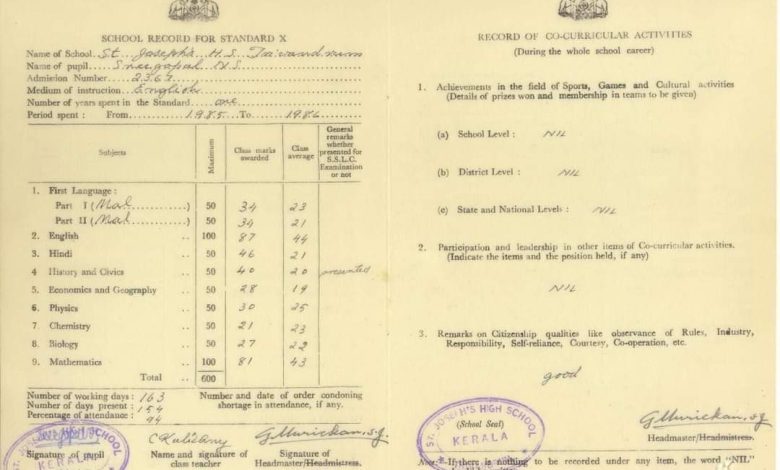 SCHOOL RECORD FOR STANDARD X
Name of School St. Joseph's H.S. Trivandrum
Name of pupil Sreegopal N.S.
Admission Number 2367
Medium of instruction English
Number of years spent in the Standard one
Period spent : From 1985 To 1986
Subjects Maximum Class marks awarded Class average General remarks whether presented for S.S.L.C. Examination or not
1. First Language :
Part I (Mal............) 50 34 23
Part II (Mal............) 50 34 21
2. English .. 100 87 44
3. Hindi .. 50 46 21
4 History and Civics .. 50 40 20 presented
5. Economics and Geography .. 50 28 19
6. Physics .. 50 30 25
7 Chemistry .. 50 21 23
8. Biology .. 50 27 22
9. Mathematics .. 100 81 43
Total .. 600
Number of working days : 163
Number of days present : 154
Percentage of attendance : 94
Number and date of order condoning shortage in attendance, if any.
ST. JOSEPH'S HIGH SCHOOL
KERALA
G Murickan, s.j.
Signature of pupil
Name and signature of class teacher
Signature of Headmaster/Headmistress.
RECORD OF CO-CURRICULAR ACTIVITIES
(During the whole school career)
1. Achievements in the field of Sports, Games and Cultural activities
(Details of prizes won and membership in teams to be given)
(a) School Level : NIL
(b) District Level : NIL
(c) State and National Level : NIL
2. Participation and leadership in other items of Co-curricular activities.
(Indicate the items and the position held, if any)
NIL
3. Remarks on Citizenship qualities like observance of Rules, Industry,
Responsibility, Self-reliance, Courtesy, Co-operation, etc.
good
ST. JOSEPH'S HIGH SCHOOL
(School Seal)
KERALA
G Murickan, s.j.
Headmaster/Headmistress.
Note :-If there is nothing to be recorded under any item, the word "NIL"